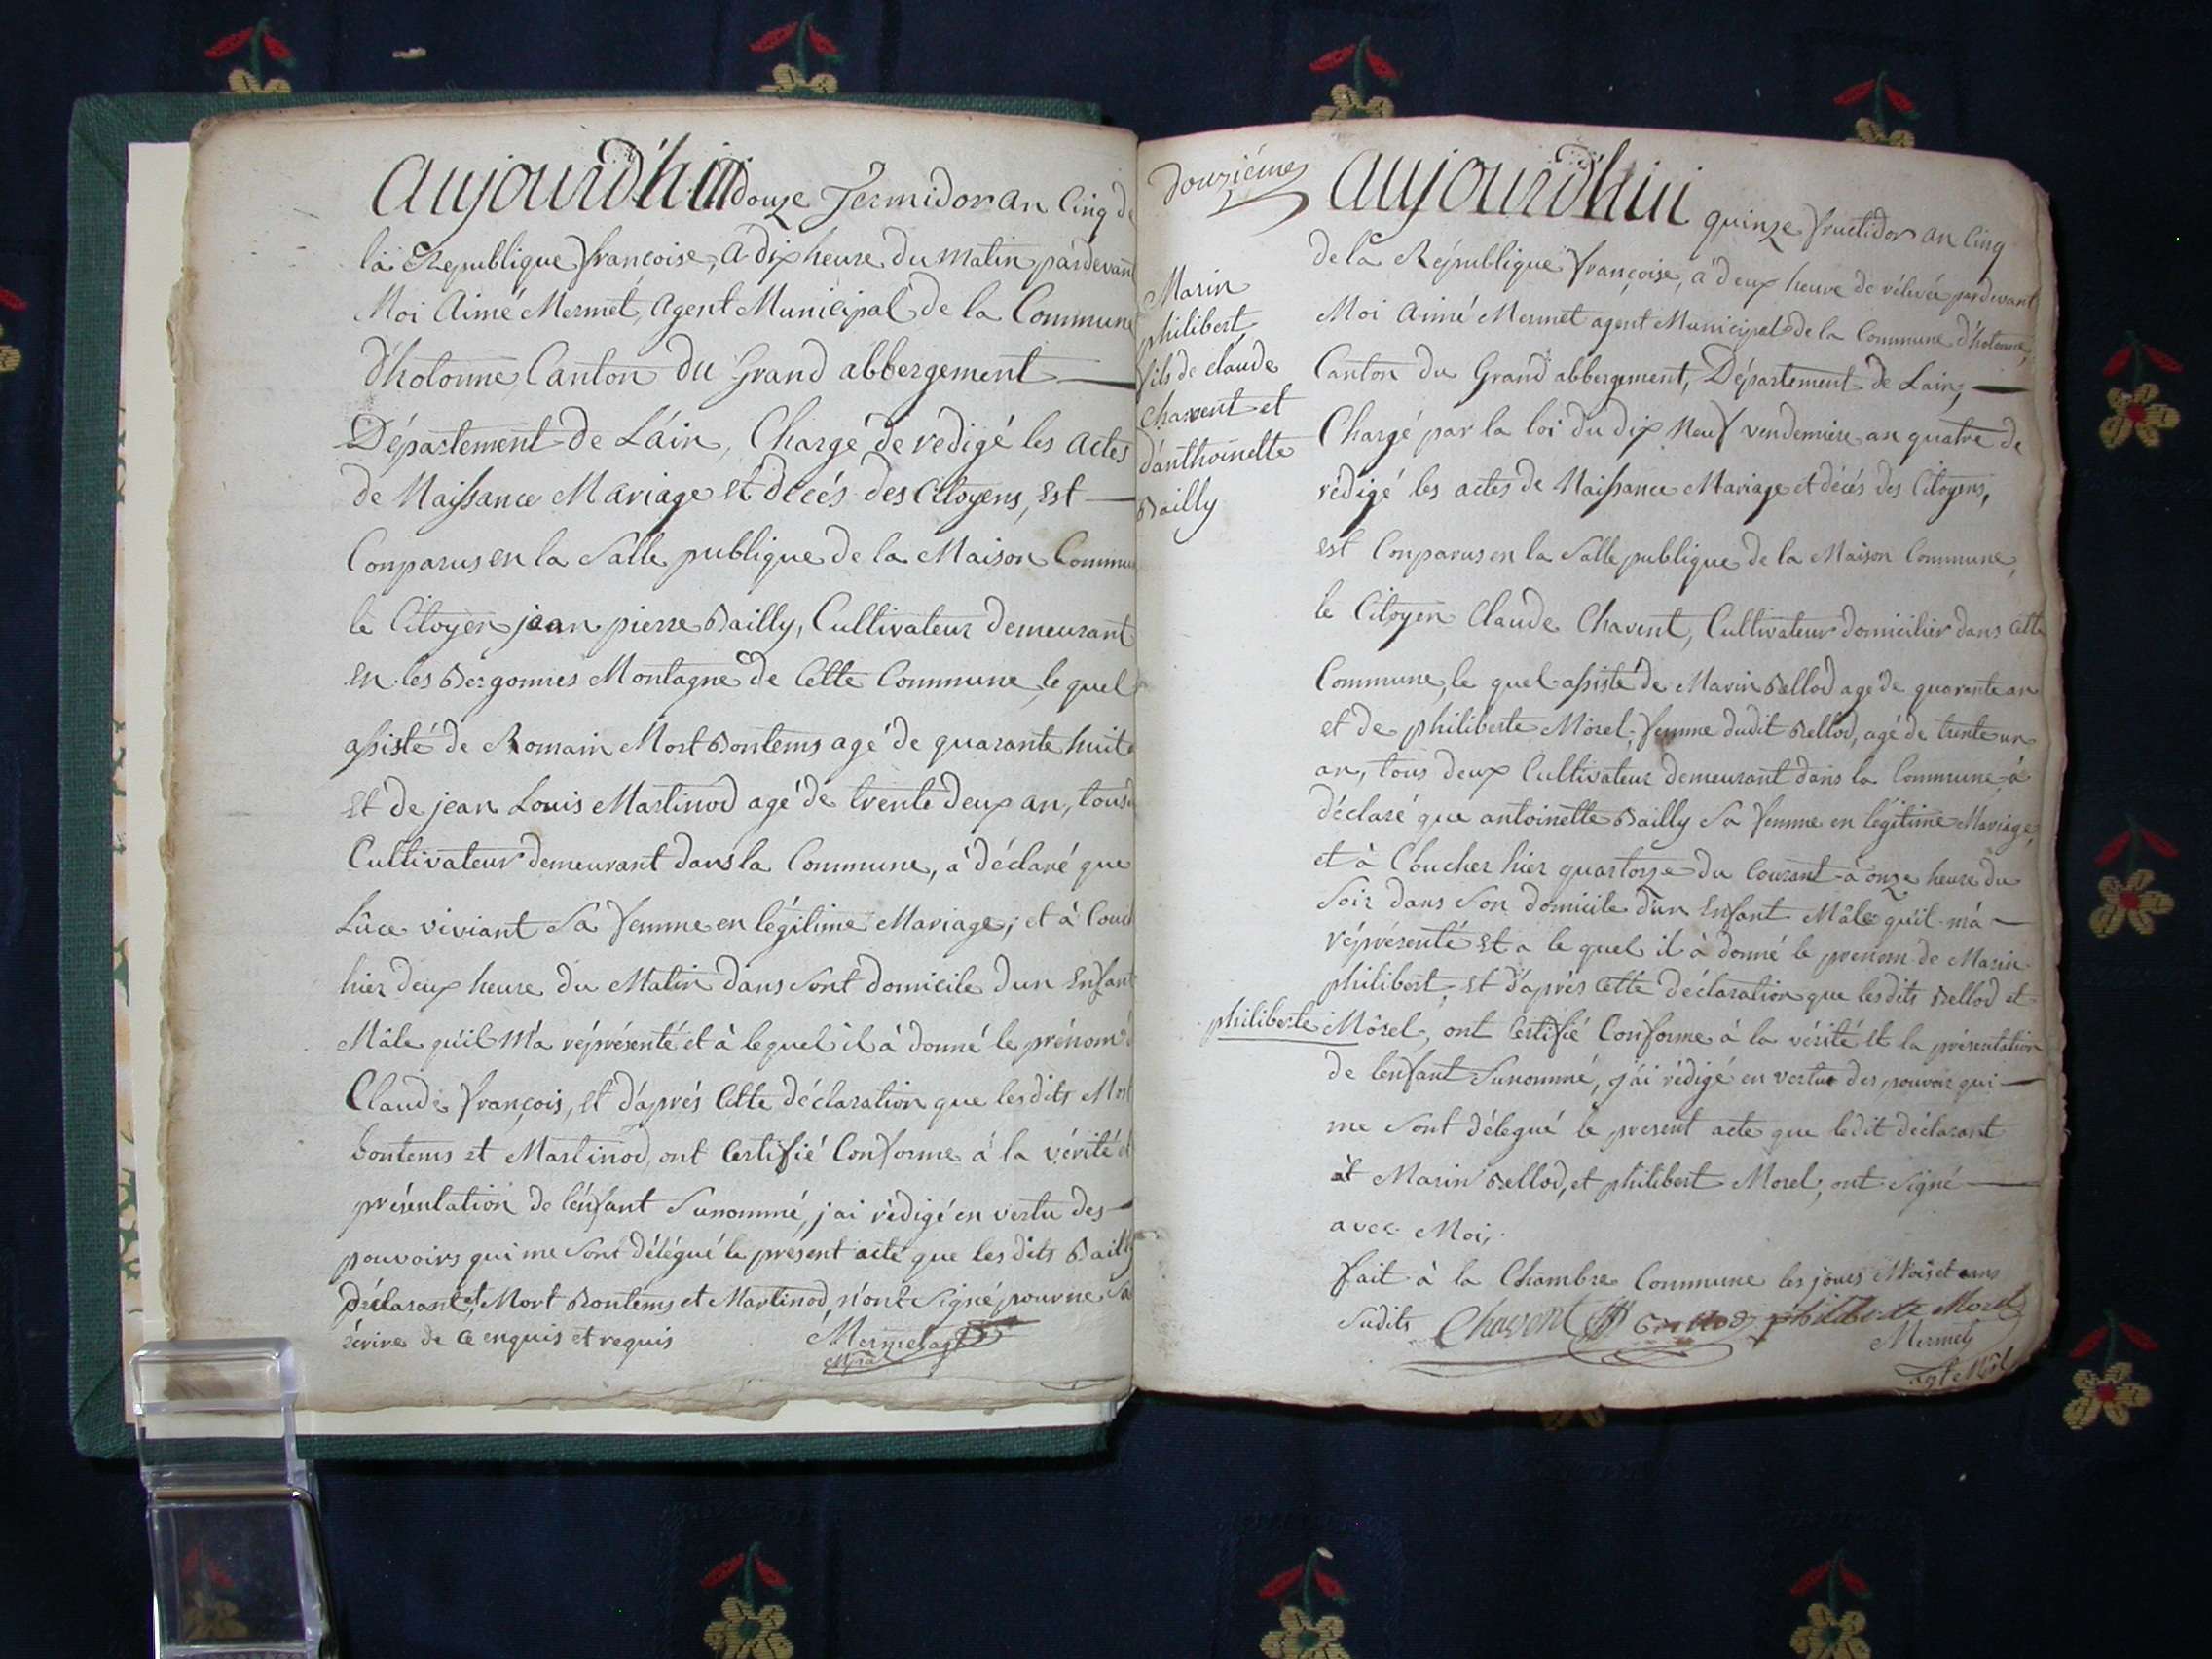 aujourd'hui douze Termidor an Cinq de
la Republique françoise, a dix heure du matin pardevant
Moi Aimé Mermet, agent Municipal de la Commune
d'hotonne Canton du Grand abbergement
Département de Láin, Chargé de redigé les actes
de Naissance Mariage et décés des Citoyens, est
Conparus en la Salle publique de la Maison Commu
le Citoyen jean pierre Bailly, Cultivateur demeurant
en les Bergonnes Montagne de Cette Commune, le quel
assisté de Romain Mort Bontems agé de quarante huit
et de jean Louis Martinod agé de trente deux an, tous
Cultivateur demeurant dans la Commune, a déclaré que
Lúce viviant Sa femme en légitime Mariage; et à Couch
hier deux heure du Matin dans Sont domicile dun Enfant
Mâle qu'il M'a réprésenté et à lequel il à donné le prénom
Claude françois, et d'aprés Cette déclaration que lesdits Mort
bontems et Martinod, ont Certifié Conforme á la vérité et
présentation de lénfant Sunommé, j'ai rédigé en vertu des
pouvoirs qui me Sont délégué le présent acte que les dits Bailly
Déclarant et Mort Bontems et Martinod, n'ont Signé pour ne Sa
écrire de Ce enquis et requis Mermet agt
Mpal
douziéme
Marin
philibert
fils de claude
chavent et
d'anthoinette
Bailly
aujourd'hui quinze fructidor an Cinq
de la République françoise, à deux heure de rélevée pardevant
Moi Aimé Mermet agent Municipal de la Commune d'hotonne,
Canton du Grand abbergement, Département de Lain,
Chargé par la loi du dix Neuf vendemiere an quatre de
rédigé les actes de Naissance Mariage et décés des Citoyens,
est Conparus en la Salle publique de la Maison Commune,
le Citoyen Claude Chavent, Cultivateur domicilier dans Cette
Commune, le quel assisté de Marin Bellod agé de quarante an
et de philiberte Morel, femme dudit Bellod, agé de trente un
an, tous deux Cultivateur demeurant dans la Commune, á
déclaré que antoinette Bailly Sa femme en légitime Mariage,
et à Coucher hier quartorze du Courant à onze heure du
Soir dans Son domicile d'un Enfant Mâle qu'il m'á
réprésenté et a le quel il à donné le prenom de Marin
philibert, et d'aprés Cette déclaration que lesdits Bellod et
philiberte Morel, ont Certifié Conforme à la vérité et la présentation
de lenfant Sunommé, j'ai rédigé en vertue des pouvoir qui
me Sont délegué le present acte que ledit déclarant
et Marin Bellod, et philibert Morel, ont Signé
avec Moi,
fait à la Chambre Commune les jours Mois et ans
Sudits Chavent philiberte Morel
Mermet
agt Mpal